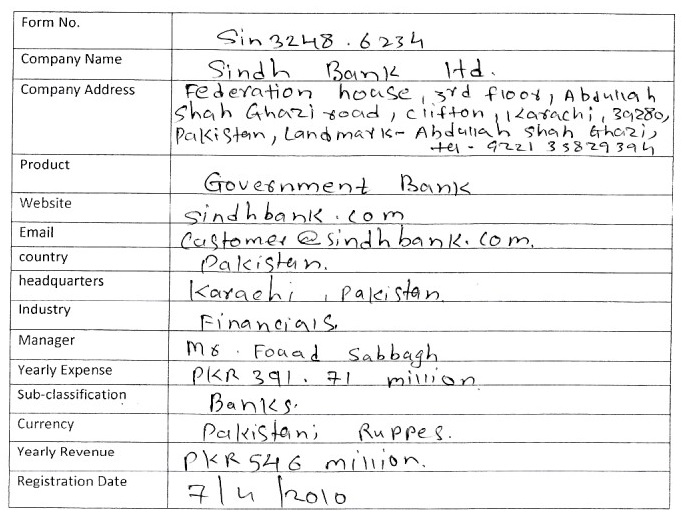 Form No. Sin3248.6234
Company Name Sindh Bank Ltd.
Company Address Federation house, 3rd floor, Abdullah
Shah Ghazi road, clifton, Karachi, 39280,
Pakistan, Landmark- Abdullah Shah Ghazi,
tel - 9221 35829394
Product Government Bank
Website sindhbank.com
Email Customer@sindhbank.com.
country Pakistan.
headquarters Karachi, Pakistan.
Industry Financials.
Manager Mr. Fouad Sabbagh
Yearly Expense PKR 391.71 million
Sub-classification Banks.
Currency Pakistani Ruppes.
Yearly Revenue PKR 546 million.
Registration Date 7/4/2010